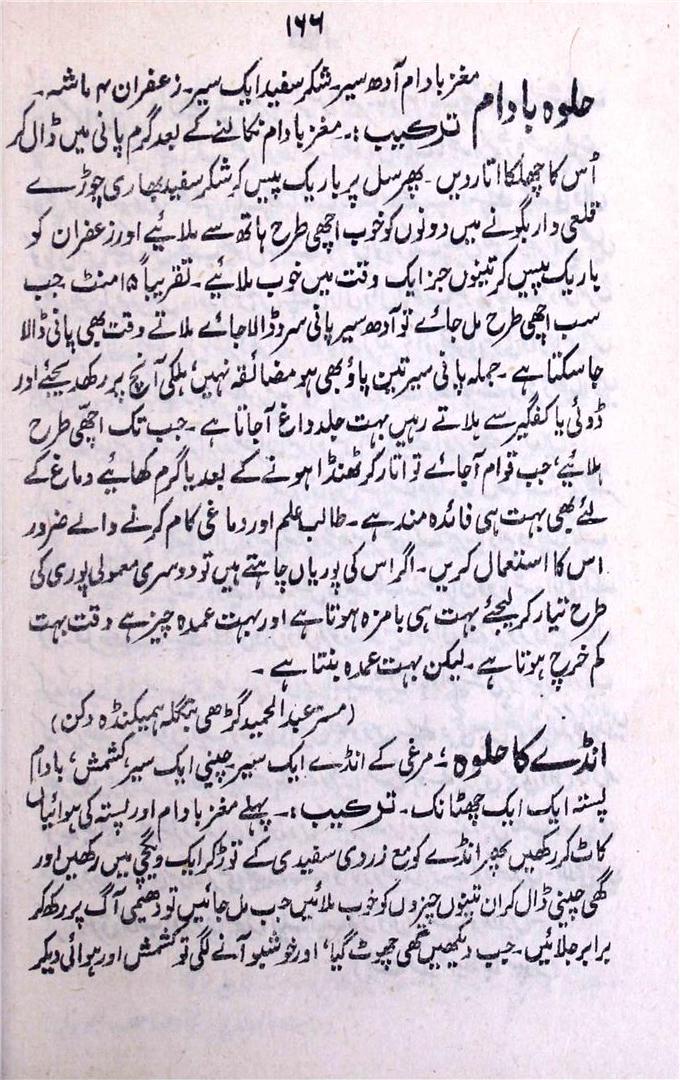 ۱۶۶
حلوہ بادام مغز بادام آدھ سیر۔ شکر سفید ایک سیر۔ زعفران ۴ ماشہ۔
ترکیب :۔ مغز بادام نکالنے کے بعد گرم پانی میں ڈال کر
اُس کا چھلکا اتار دیں۔ پھر سل پر باریک پیس کر شکر سفید بھاری چوڑے
قلعی دار بگونے میں دونوں کو خوب اچھی طرح ہاتھ سے ملائیے اور زعفران کو
باریک پیس کر تینوں جز ایک وقت میں خوب ملائیے۔ تقریباً ۱۵ منٹ جب
سب اچھی طرح مل جائے تو آدھ سیر پانی سرد ڈالا جائے ملاتے وقت بھی پانی ڈالا
جا سکتا ہے۔ جملہ پانی سیر تین پاؤ بھی ہو مضائقہ نہیں، ہلکی آنچ پر رکھ دیجئے اور
ڈوئی یا کفگیر سے ہلاتے رہیں بہت جلد داغ آجاتا ہے۔ جب تک اچھّی طرح
ہلائیے، جب قوام آجائے تو اتار کر ٹھنڈا ہونے کے بعد یا گرم کھائیے دماغ کے
لئے بھی بہت ہی فائدہ مند ہے۔ طالب علم اور دماغی کام کرنے والے ضرور
اس کا استعمال کریں۔ اگر اس کی پوریاں چاہتے ہیں تو دوسری معمولی پوری کی
طرح تیار کر لیجئے بہت ہی بامزہ ہوتا ہے اور بہت عمدہ چیز ہے وقت بہت
کم خرچ ہوتا ہے۔ لیکن بہت عمدہ بنتا ہے۔
(مسز عبدالحمید گڑھی بنگلہ ہمیکنڈہ دکن)
انڈے کا حلوہ :۔ مرغی کے انڈے ایک سیر چینی ایک سیر، کشمش، بادام
پستہ ایک ایک چھٹانک۔ ترکیب :۔ پہلے مغز بادام اور پستہ کی ہوائیاں
کاٹ کر رکھیں پھر انڈے کو مع زردی سفیدی کے توڑ کر ایک دیگچی میں رکھیں اور
گھی چینی ڈال کر ان تینوں چیزوں کو خوب ملائیں جب مل جائیں تو دھیمی آگ پر رکھ کر
برابر چلائیں۔ جب دیکھیں گھی چھوٹ گیا، اور خوشبو آنے لگی تو کشمش اور ہوائی دیکر